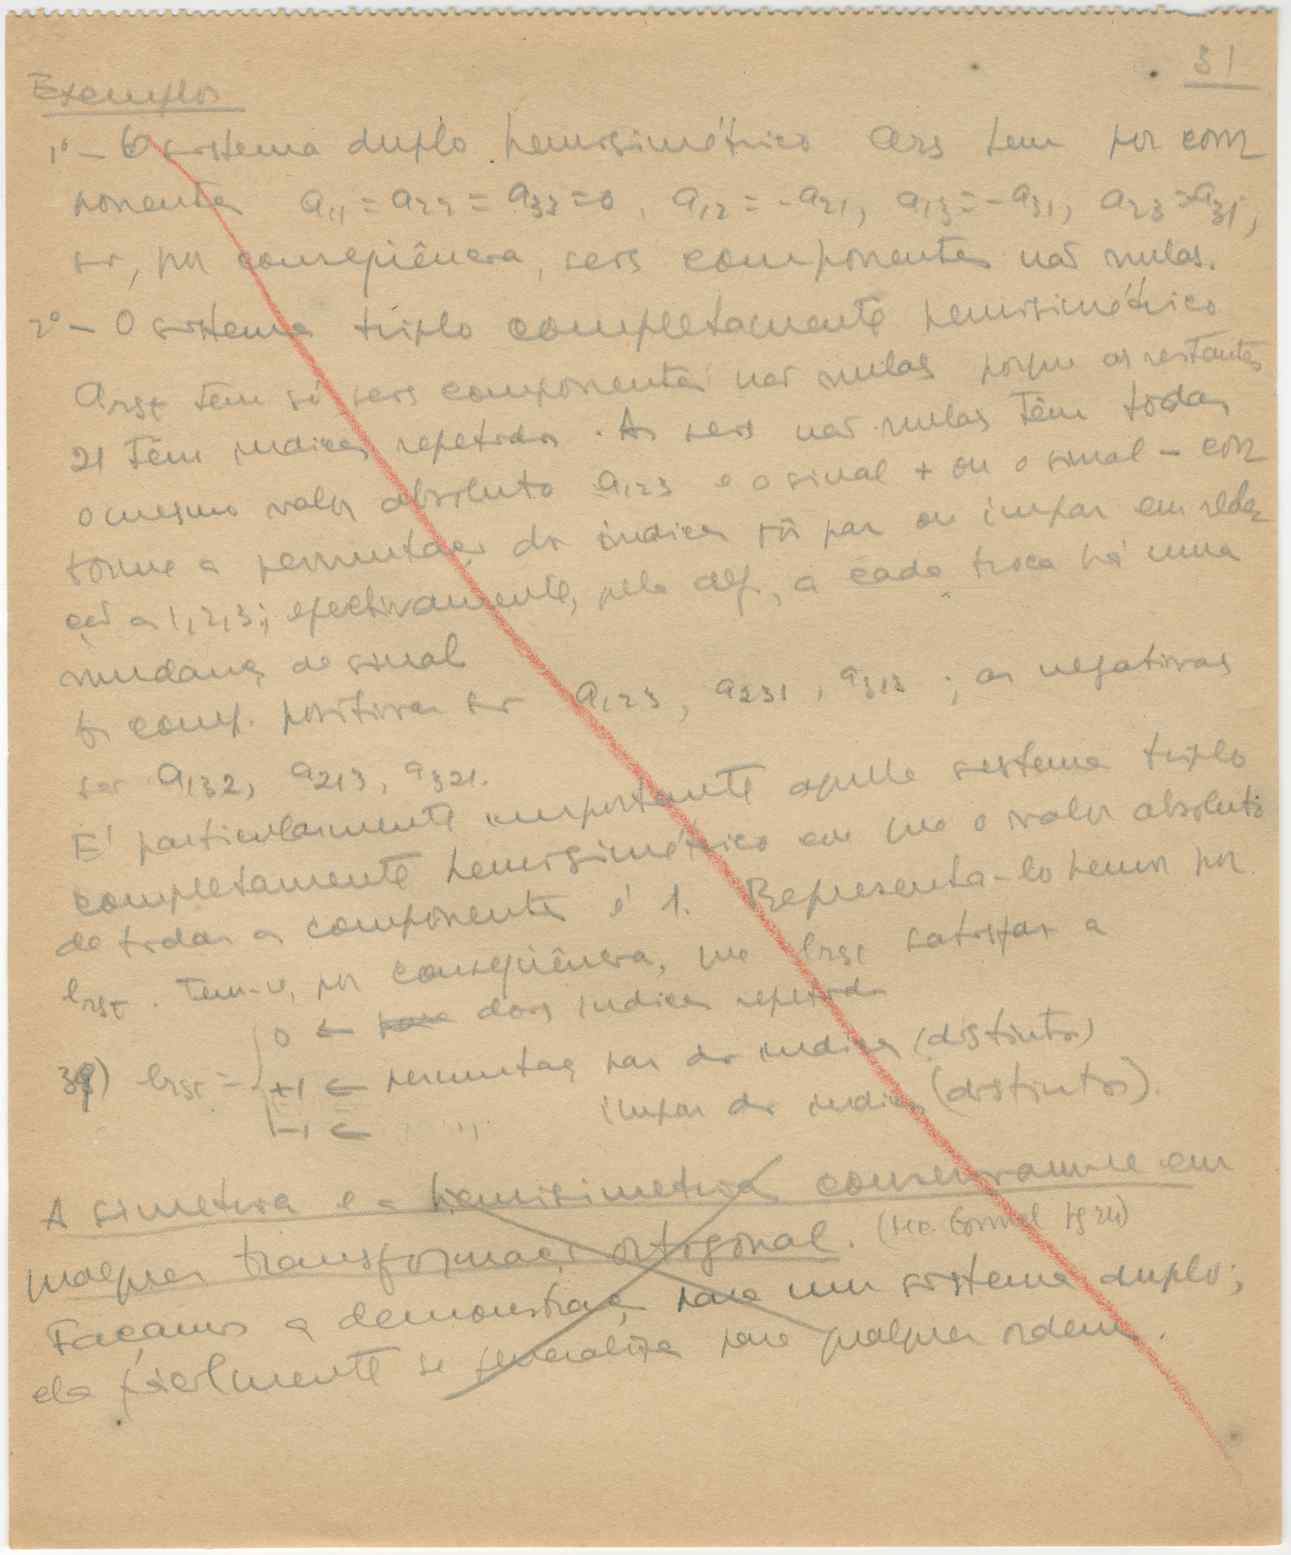 31
Exemplos
1º - O sistema duplo hemisimétrico ars tem por com
ponentes a11 = a22 = a33 = 0, a12 = -a21, a13 = -a31, a23 =
por conseqüência, seis componentes não nulas.
2º - O sistema triplo completamente hemisimétrico
arst tem só seis componentes não nulas porque as restantes
21 têm indices repetidos. As seis não nulas têm todas
o mesmo valor absoluto a123 e o sinal + ou o sinal - con
forme a permutação dos indices é par ou impar em rela
ção a 1,2,3; efectivamente, pela def., a cada troca há uma
mudança de sinal
As comp. positivas são a123, a231, a312; as negativas
são a132, a213, a321.
É particularmente importante aquele sistema triplo
completamente hemisimétrico em que o valor absoluto
de todas as componentes é 1. Representá-lo hemos por
erst. Tem-se, por conseqüência, que erst satisfaz a
0 ← dois indices repetidos
erst = +1 ← permutação par dos indices (distintos)
-1 ← " impar dos indices (distintos).
A simetria e a hemisimetria conservam-se em
qualquer transformação ortogonal. (pg 24)
Façamos a demonstração para um sistema duplo;
ela facilmente se generaliza para qualquer ordem.